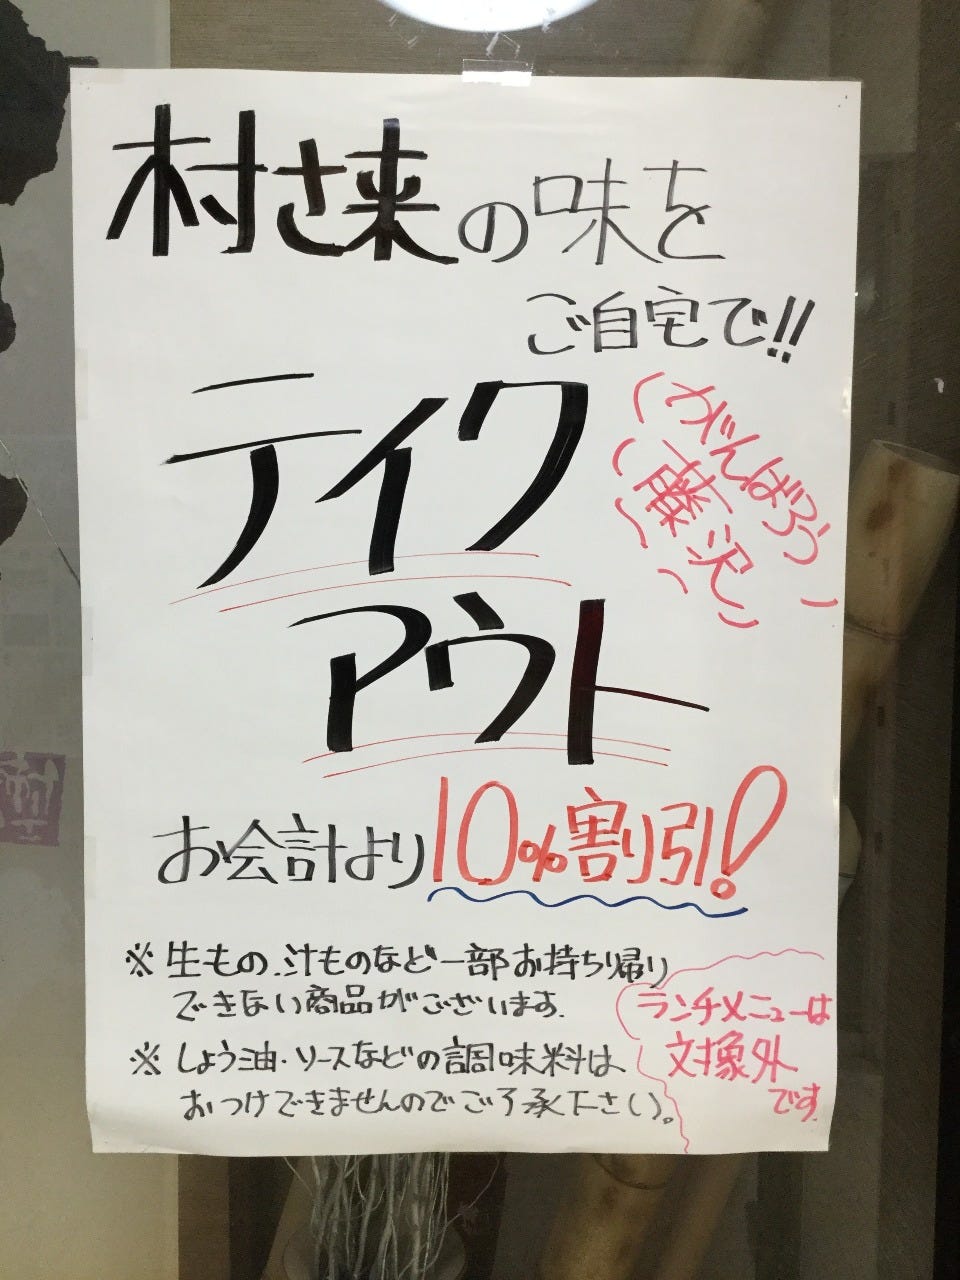 村さ来の味を
ご自宅で!!
テイク
アウト
がんばろう
藤沢
お会計より10%割り引!
※生もの、汁ものなど一部お持ち帰り
できない商品がございます。
※しょう油・ソースなどの調味料は
おつけできませんのでご了承下さい。
ランチメニューは
対象外
です